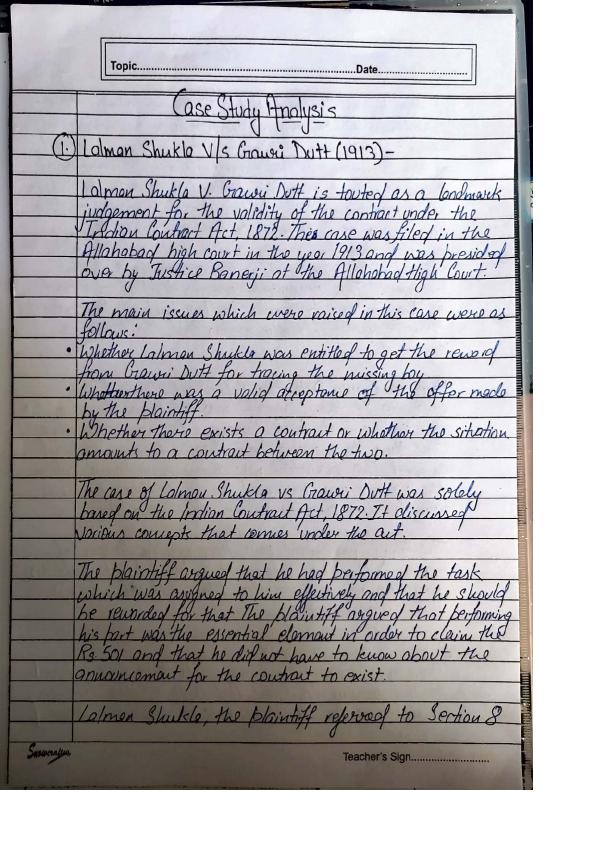 Topic..........................................................................Date..............................
Case Study Analysis
1. Lalman Shukla V/s Gauri Dutt (1913)-
Lalman Shukla V. Gauri Dutt is touted as a landmark
judgement for the validity of the contract under the
Indian Contract Act, 1872. This case was filed in the
Allahabad high court in the year 1913 and was presided
over by Justice Banerji at the Allahabad High Court.
The main issues which were raised in this case were as
follows:
• Whether Lalman Shukla was entitled to get the reward
from Gauri Dutt for tracing the missing boy
• Whether there was a valid acceptance of the offer made
by the plaintiff.
• Whether there exists a contract or whether the situation
amounts to a contract between the two.
The case of Lalman Shukla vs Gauri Dutt was solely
based on the Indian Contract Act, 1872. It discussed
various concepts that comes under the act.
The plaintiff argued that he had performed the task
which was assigned to him effectively and that he should
be rewarded for that The plaintiff argued that performing
his part was the essential element in order to claim the
Rs 501 and that he did not have to know about the
announcement for the contract to exist.
Lalman Shukla, the plaintiff referred to Section 8
Teacher's Sign...........................